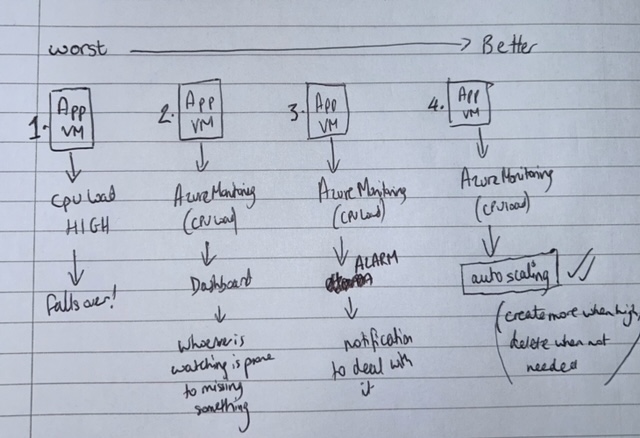 worst → Better
1. App VM
CPU Load
HIGH
falls over!
2. App VM
Azure Monitoring
(CPU Load)
Dashboard
Whoever is
watching is prone
to missing
something
3. App VM
Azure Monitoring
(CPU Load)
ALARM
notification
to deal with
it
4. App VM
Azure Monitoring
(CPU load)
auto scaling
(create more when high,
delete when not
needed)